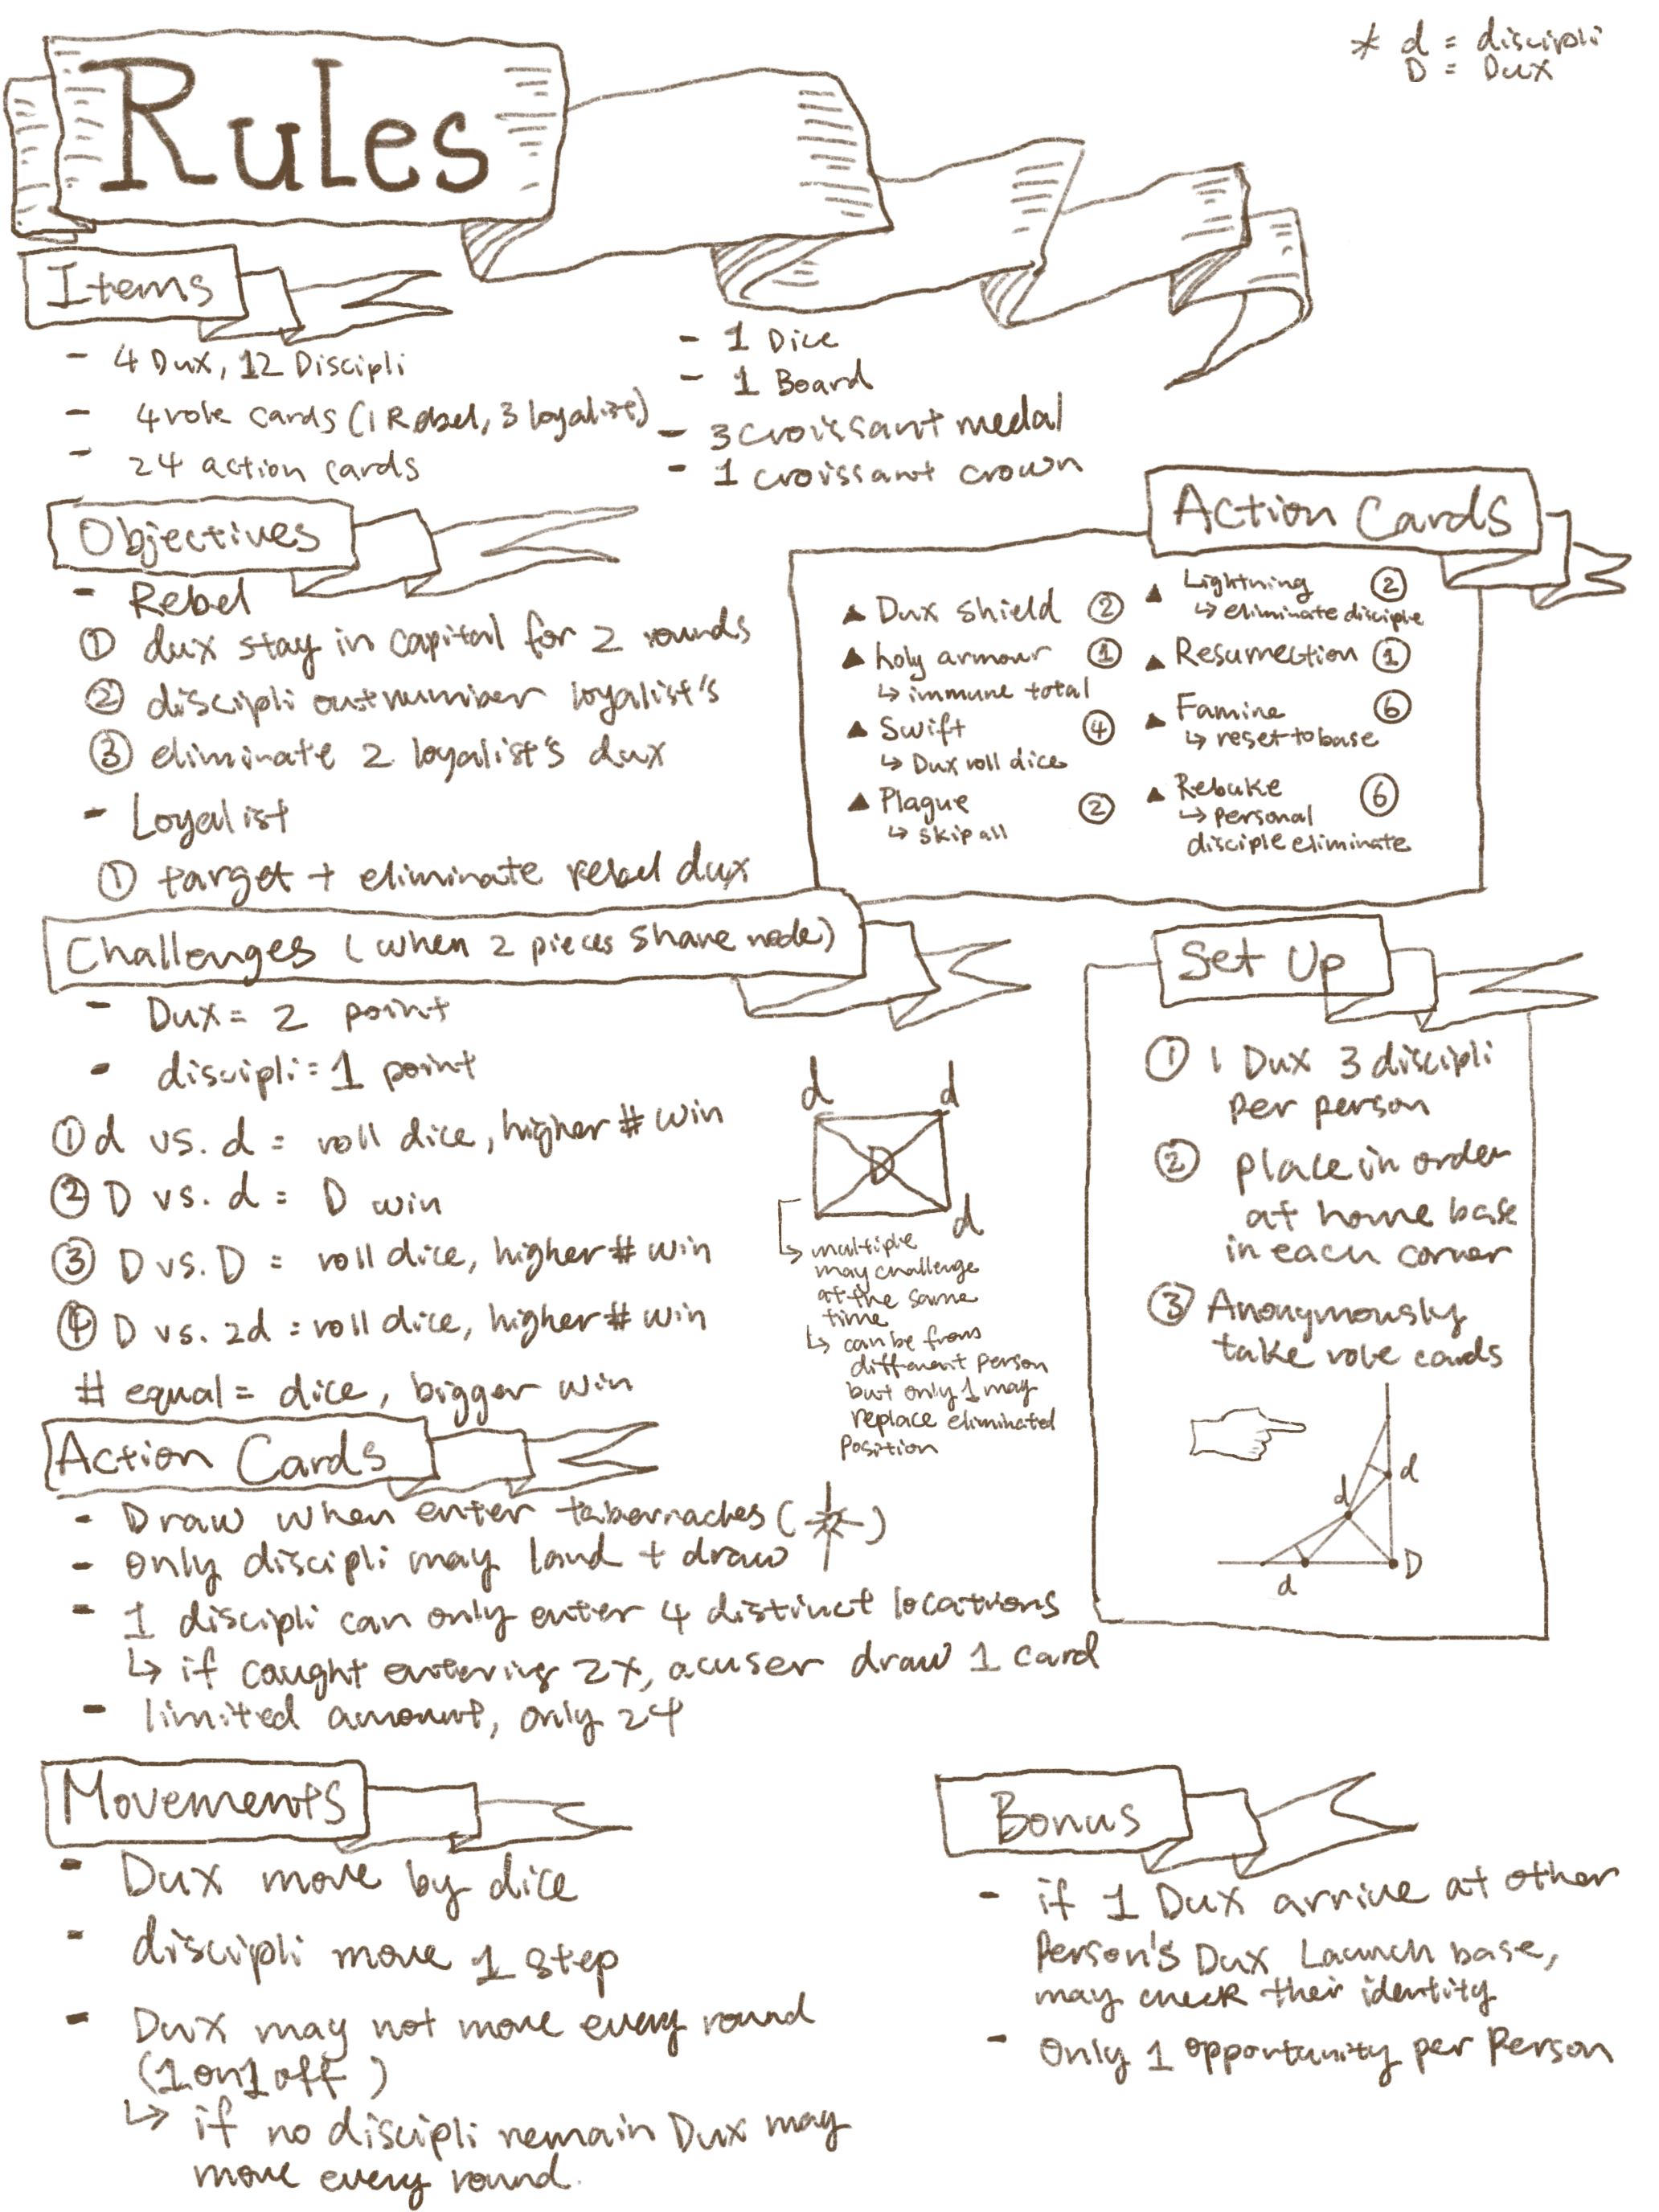 * d = discipli
D = Dux
Rules
Items
- 4 Dux, 12 Discipli
- 4 role cards (1 Rebel, 3 loyalist)
- 24 action cards
- 1 Dice
- 1 Board
- 3 croissant medal
- 1 croissant crown
Objectives
- Rebel
① dux stay in capital for 2 rounds
② discipli outnumber loyalist's
③ eliminate 2 loyalist's dux
- Loyalist
① target + eliminate rebel dux
Action Cards
▲ Dux shield ②
▲ holy armour ①
↳ immune total
▲ Swift ④
↳ Dux roll dice
▲ Plague ②
↳ skip all
▲ Lightning ②
↳ eliminate disciple
▲ Resurrection ①
▲ Famine ⑥
↳ reset to base
▲ Rebuke ⑥
↳ personal
disciple eliminate
Challenges (when 2 pieces share node)
- Dux = 2 point
- discipli = 1 point
① d vs. d = roll dice, higher # win
② D vs. d = D win
③ D vs. D = roll dice, higher # win
④ D vs. 2d = roll dice, higher # win
# equal = dice, bigger win
d d
D
d
↳ multiple
may challenge
at the same
time
↳ can be from
different person
but only 1 may
replace eliminated
position
Set Up
① 1 Dux 3 discipli
per person
② place in order
at home base
in each corner
③ Anonymously
take role cards
d
d
d
D
Action Cards
- Draw when enter tabernacles ( )
- only discipli may land + draw
- 1 discipli can only enter 4 distinct locations
↳ if caught entering 2x, acuser draw 1 card
- limited amount, only 24
Movements
- Dux move by dice
- discipli move 1 step
- Dux may not move every round
(1 on 1 off)
↳ if no discipli remain Dux may
move every round.
Bonus
- if 1 Dux arrive at other
Person's Dux Launch base,
may check their identity
- Only 1 opportunity per Person